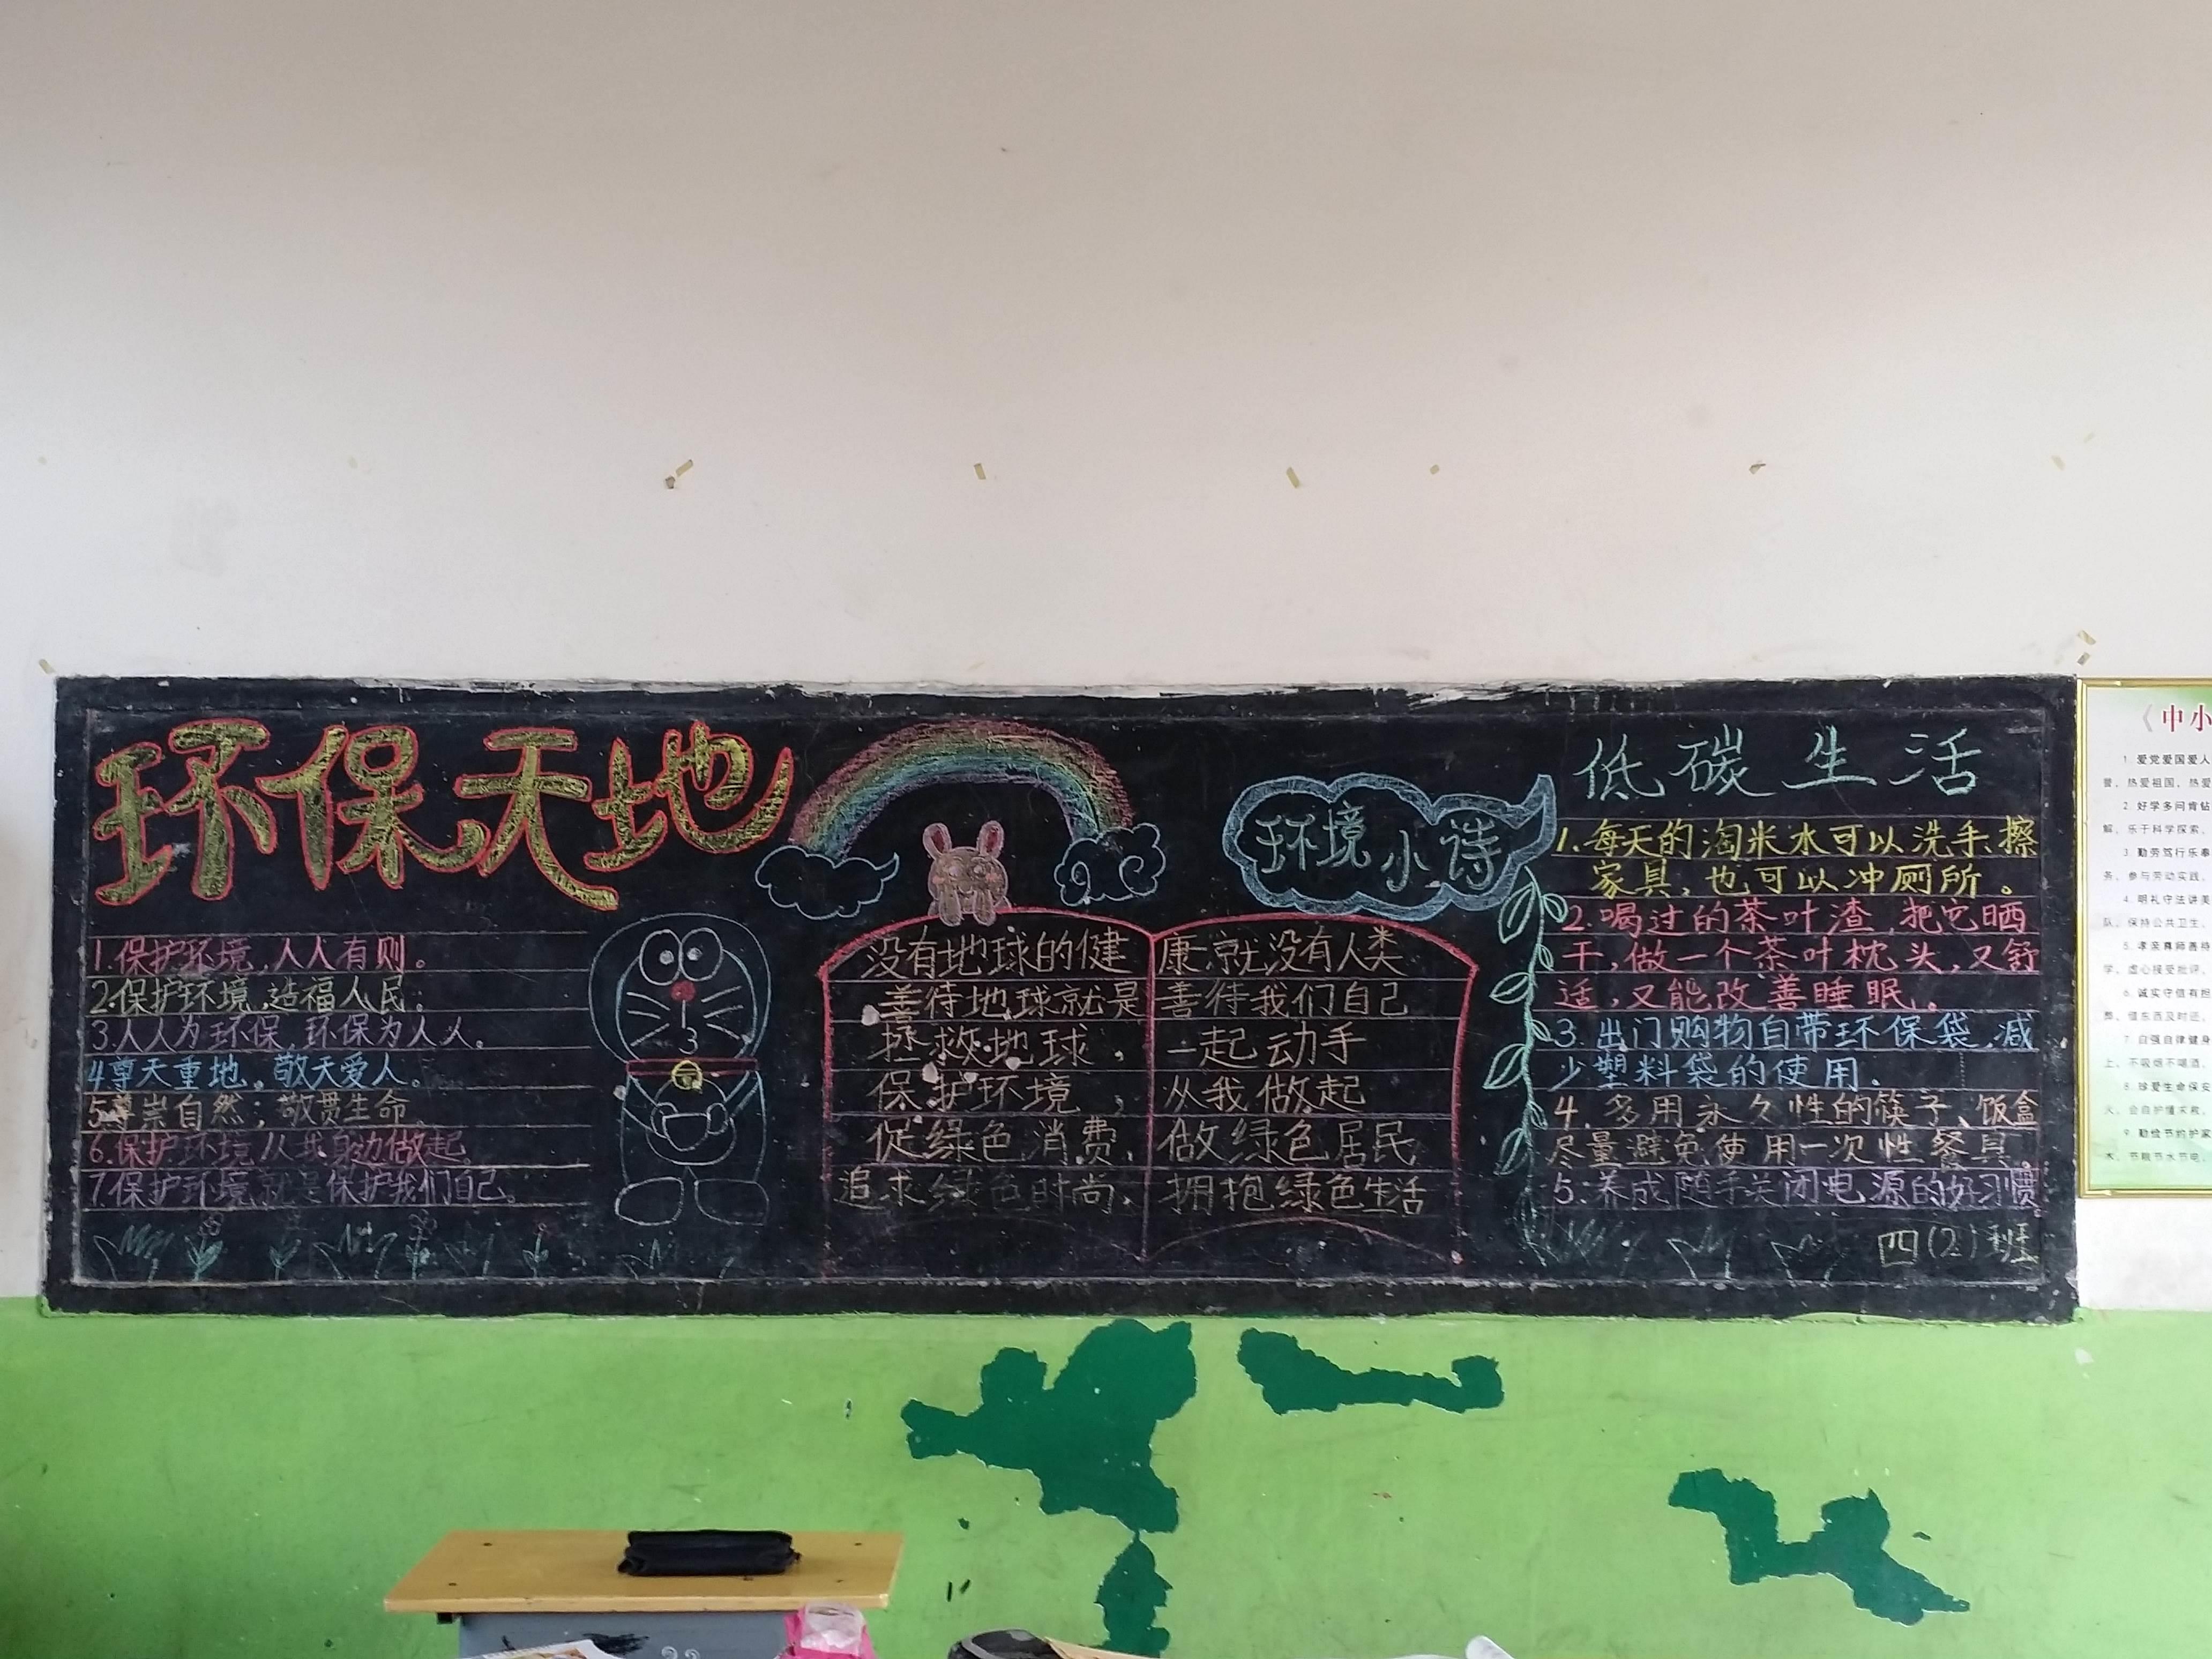 环保天地
1.保护环境,人人有则。
2.保护环境,造福人民。
3.人人为环保,环保为人人。
4尊天重地。敬天爱人。
5尊崇自然;敬贯生命
6.保护环境从我身边做起
7.保护环境就是保护我们自己。
环境小诗
没有地球的健康就没有人类
善待地球就是善待我们自己
拯救地球,一起动手
保护环境,从我做起
促绿色消费,做绿色居民
追求绿色时尚,拥抱绿色生活
低碳生活
1.每天的淘米水可以洗手擦
家具,也可以冲厕所。
2.喝过的茶叶渣,把它晒
干,做一个茶叶枕头,又舒
适,又能改善睡眠。
3.出门购物自带环保袋,减
少塑料袋的使用.
4.多用永久性的筷子、饭盒
尽量避免使用一次性餐具
5.养成随手关闭电源的好习惯
四(2)班
《中小
1.爱党爱国爱人
誉,热爱祖国,热爱
2.好学多问肯钻
解,乐于科学探索,
3.勤劳笃行乐奉
务,参与劳动实践,
4.明礼守法讲美
队,保持公共卫生,
5.孝亲尊师善待
学,虚心接受批评,
6.诚实守信有担
弊,借东西及时还,
7.自强自律健身
上,不吸烟不喝酒,
8.珍爱生命保安
火,会自护懂求救,
9.勤俭节约护家
木,节粮节水节电,